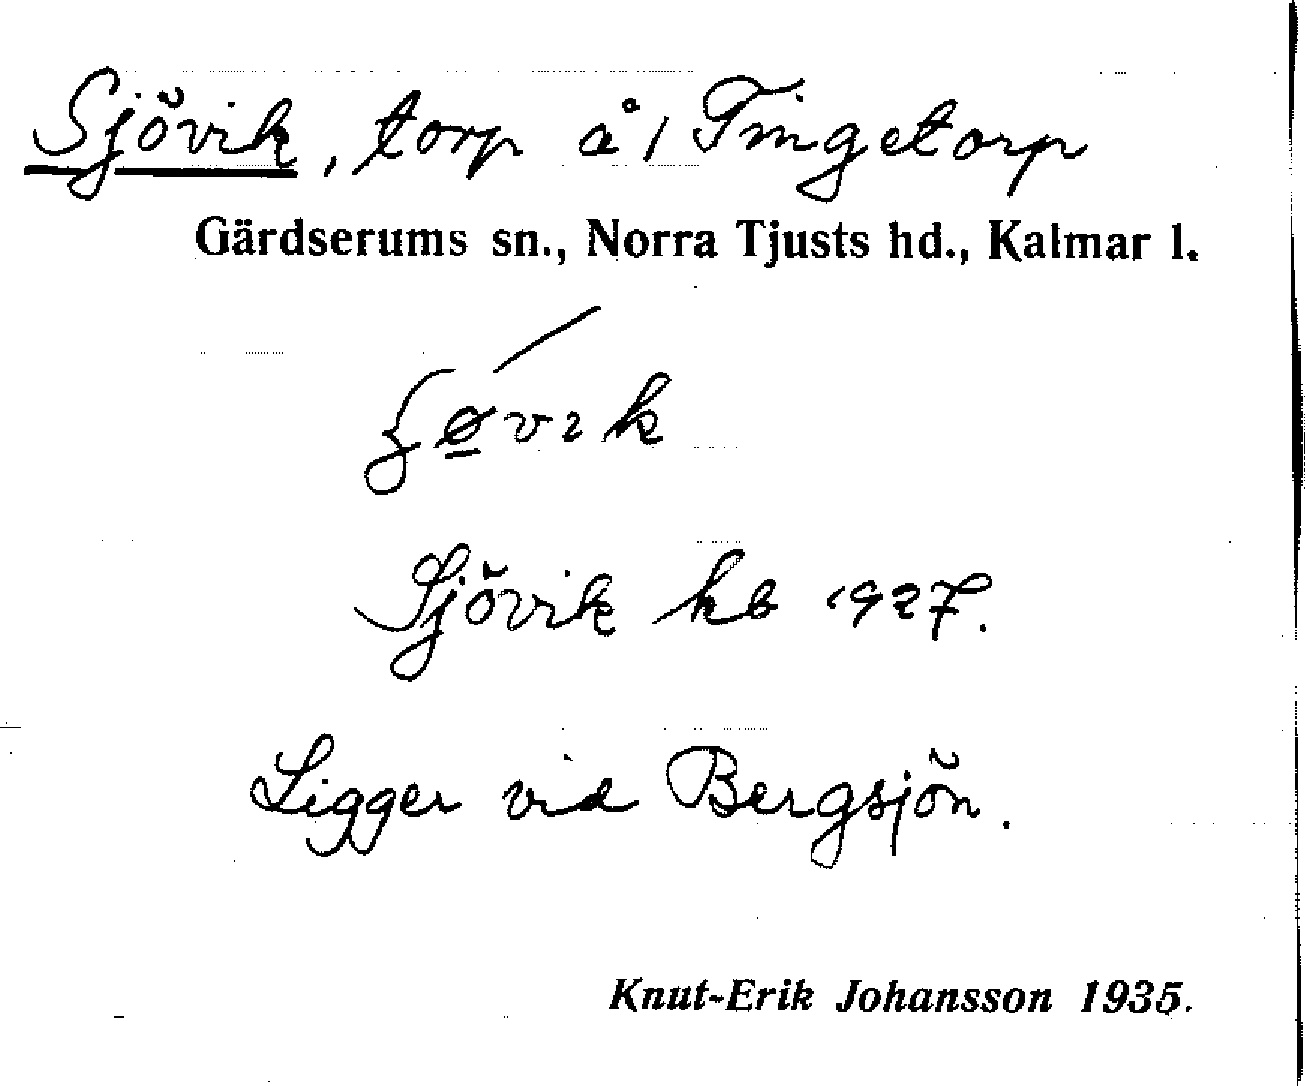 Sjövik, torp å 1 Tingetorp
Gärdserums sn., Norra Tjusts hd., Kalmar l.
Sjövik kb 1927.
Ligger vid Bergsjön.
Knut-Erik Johansson 1935.